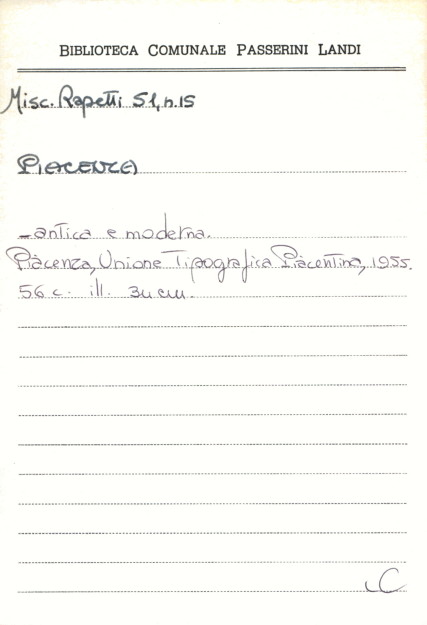 BIBLIOTECA COMUNALE PASSERINI LANDI
Misc. Rapetti 51, n.15
PIACENZA
- antica e moderna.
Piacenza, Unione Tipografica Piacentina, 1955.
56 c. ill. 34 cm.
C